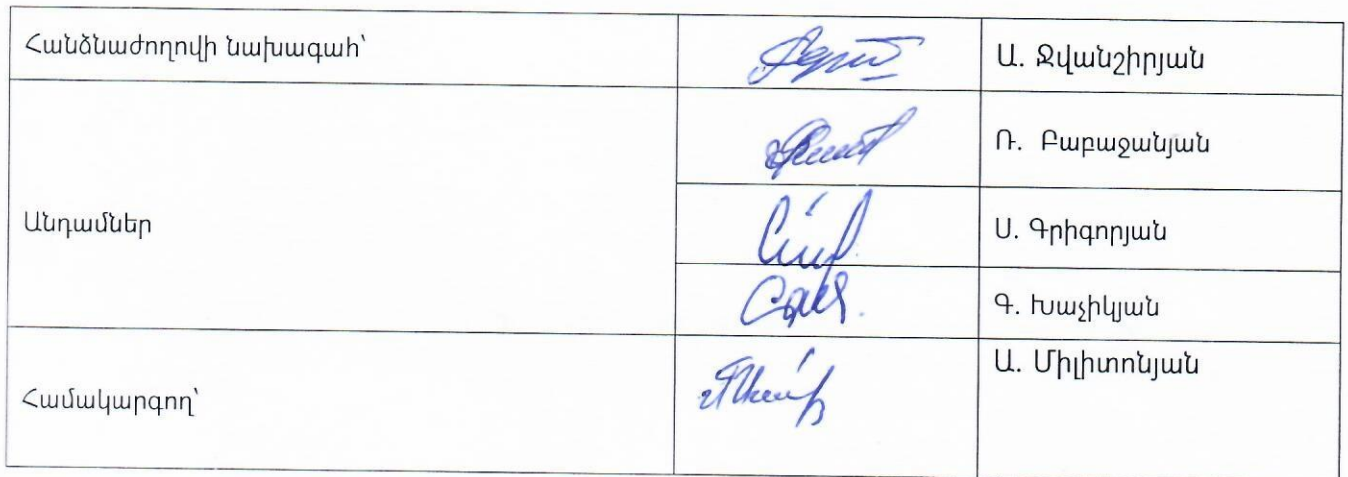 Հանձնաժողովի նախագահ՝
Ա. Ջվանշիրյան
Անդամներ
Ռ. Բաբաջանյան
Ս. Գրիգորյան
Գ. Խաչիկյան
Համակարգող՝
Ա. Միլիտոնյան